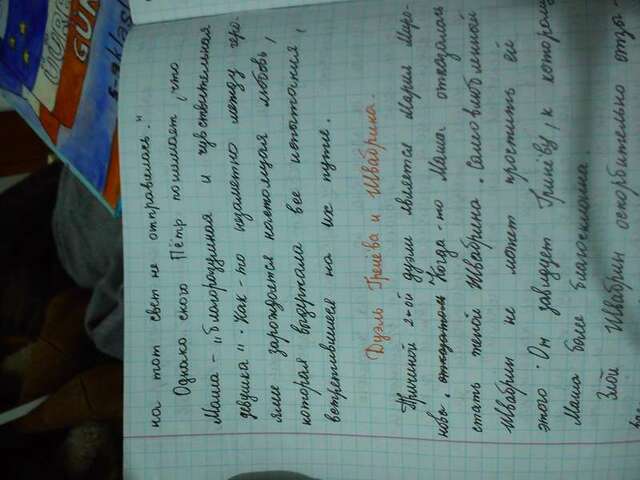 ÜÜR
GÜN
5-
на тот свет не отправилась."
Однако скоро Пётр понимает, что
Маша - "благоразумная и чувствительная
девушка". Как-то незаметно между геро-
ями зарождается настоящая любовь,
которая выдержала все испытания,
встретившиеся на их пути.
Дуэль Гренёва и Швабрина.
Причиной 2-ой дуэли является Мария Миро-
нова. Когда-то Маша отказалась
стать женой Швабрина. Самовлюбленный
Швабрин не может простить ей
этого. Он завидует Гринёву, к которому
Маша более благосклонна.
Злой Швабрин оскорбительно отзы-